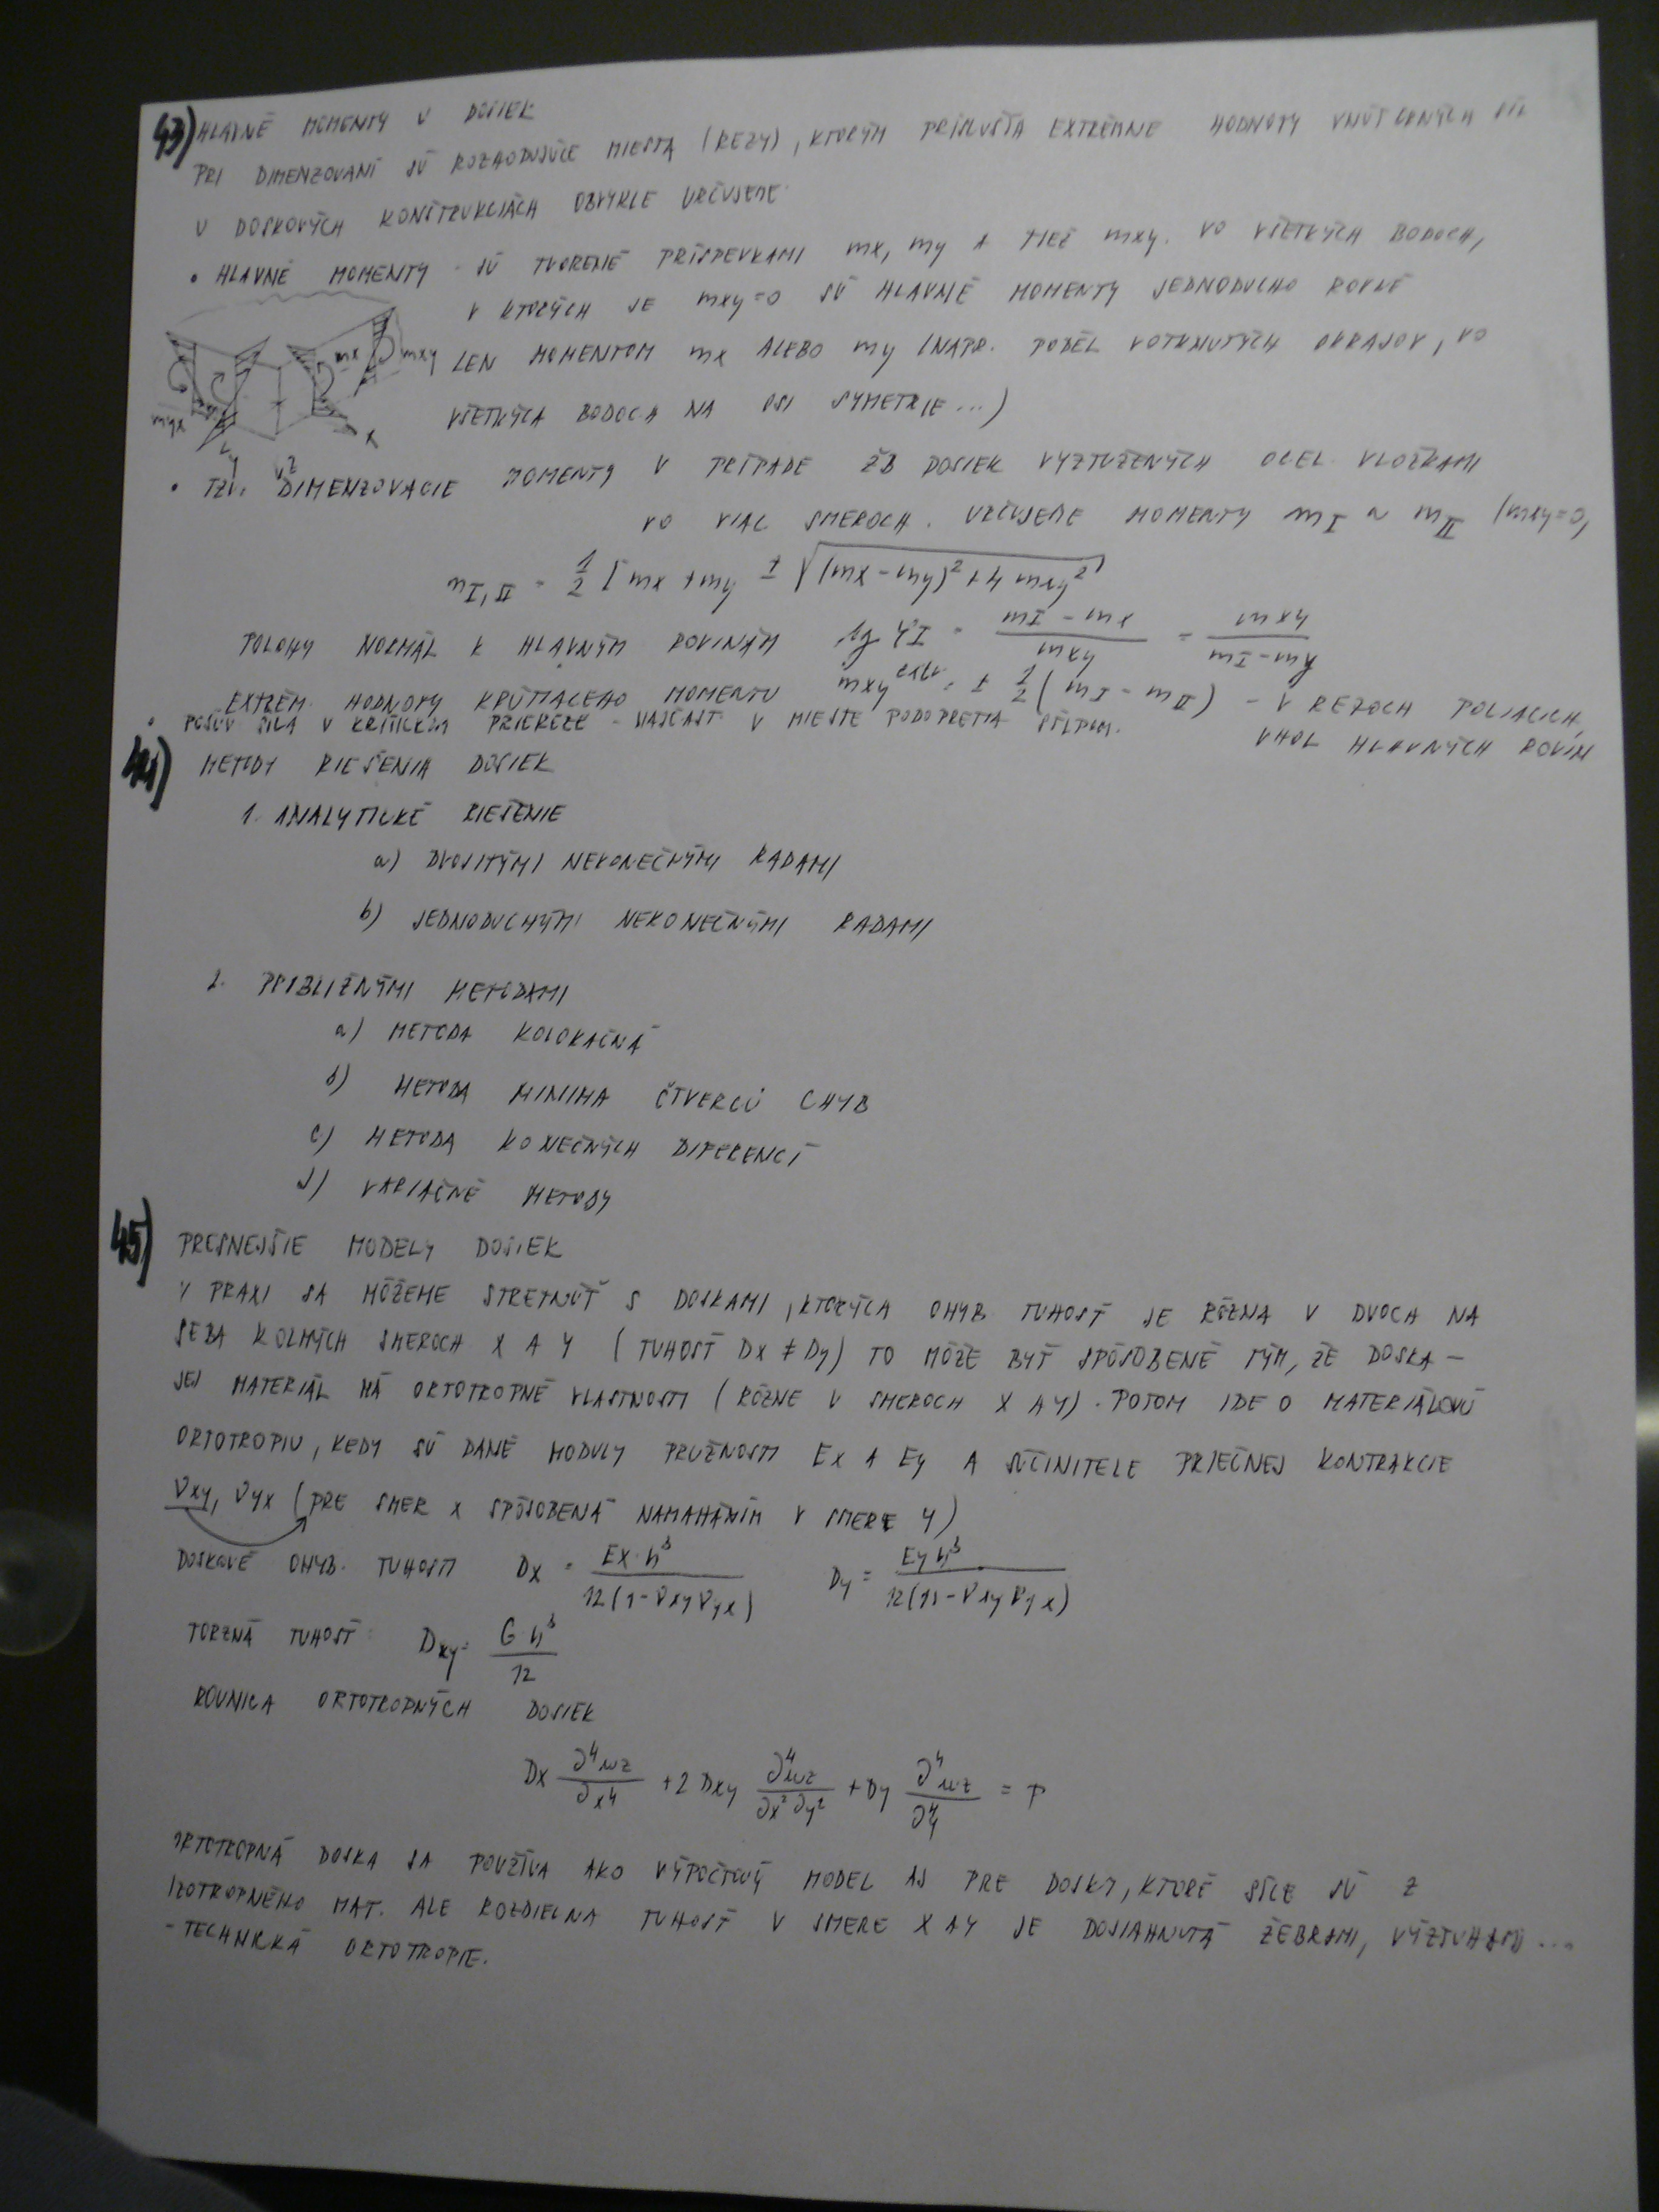 43) HLAVNÉ MOMENTY U DOSIEK
PRI DIMENZOVANÍ SÚ ROZHODUJÚCE MIESTA (REZY), KTORÝM PRÍSLUŠÍA EXTRÉMNE HODNOTY VNÚTORNÝCH SÍL
U DOSKOVÝCH KONŠTRUKCIÁCH OBVYKLE URČUJEME
• HLAVNÉ MOMENTY - SÚ TVORENÉ PRÍSPEVKAMI mx, my A TIEŽ mxy. VO VŠETKÝCH BODOCH,
V KTORÝCH JE mxy=0 SÚ HLAVNÉ MOMENTY JEDNODUCHO ROVNÉ
LEN MOMENTOM mx ALEBO my (NAPR. PODĹL VOTKNUTÝCH OKRAJOV, VO
VŠETKÝCH BODOCH NA OSI SYMETRIE...)
mx mxy
myx
x
y
z
• TZV. DIMENZOVACIE MOMENTY V PRÍPADE ŽB DOSIEK VYZTUŽENÝCH OCEL. VLOŽKAMI
VO VIAC SMEROCH. URČUJEME MOMENTY mI ~ mII (mxy=0,
mI,II = 1/2 [mx + my ± √((mx - my)² + 4 mxy²)
POLOHY NORMÁL K HLAVNÝM ROVINÁM tg φI = (mI - mx)/mxy = mxy/(mI - my)
EXTRÉM. HODNOTY KRÚTIACEHO MOMENTU mxy extr = ± 1/2 (mI - mII) - V REZOCH POLIACICH
UHOL HLAVNÝCH ROVÍN
• POSUV SILA V KRITICKOM PRIEREZE - NAJČAST. V MIESTE PODOPRETIA STĹPOM.
44) METODY RIEŠENIA DOSIEK
1. ANALYTICKÉ RIEŠENIE
a) DVOJITÝMI NEKONEČNÝMI RADAMI
b) JEDNODUCHÝMI NEKONEČNÝMI RADAMI
2. PRIBLIŽNÝMI METODAMI
a) METODA KOLOKAČNÁ
b) METODA MINIMA ČTVERCŮ CHYB
c) METODA KONEČNÝCH DIFERENCÍ
d) VARIAČNÉ METODY
45) PRESNEJŠIE MODELY DOSIEK
V PRAXI SA MÔŽEME STRETNÚŤ S DOSKAMI, KTORÝCH OHYB. TUHOSŤ JE RÔZNA V DVOCH NA
SEBA KOLMÝCH SMEROCH X A Y (TUHOSŤ Dx ≠ Dy) TO MÔŽE BYŤ SPÔSOBENÉ TÝM, ŽE DOSKA -
JEJ MATERIÁL MÁ ORTOTROPNÉ VLASTNOSTI (RÔZNE V SMEROCH X A Y). POTOM IDE O MATERIÁLOVÚ
ORTOTROPIU, KEDY SÚ DANÉ MODULY PRUŽNOSTI Ex A Ey A SÚČINITELE PRIEČNEJ KONTRAKCIE
νxy, νyx (PRE SMER X SPÔSOBENÁ NAMAHÁNÍM V SMERE Y)
DOSKOVÉ OHYB. TUHOSTI Dx = Ex·h³/12(1-νxyνyx) Dy = Eyh³/12(1-νxyνyx)
TORZNÁ TUHOSŤ: Dxy = G·h³/12
ROVNICA ORTOTROPNÝCH DOSIEK
Dx ∂⁴wz/∂x⁴ + 2 Dxy ∂⁴wz/∂x²∂y² + Dy ∂⁴wz/∂y⁴ = P
ORTOTROPNÁ DOSKA SA POUŽÍVA AKO VÝPOČTOVÝ MODEL AJ PRE DOSKY, KTORÉ SÍCE SÚ Z
IZOTROPNÉHO MAT. ALE ROZDIELNA TUHOSŤ V SMERE X A Y JE DOSIAHNUTÁ ŽEBRAMI, VÝZTUHAMI ...
- TECHNICKÁ ORTOTROPIE.